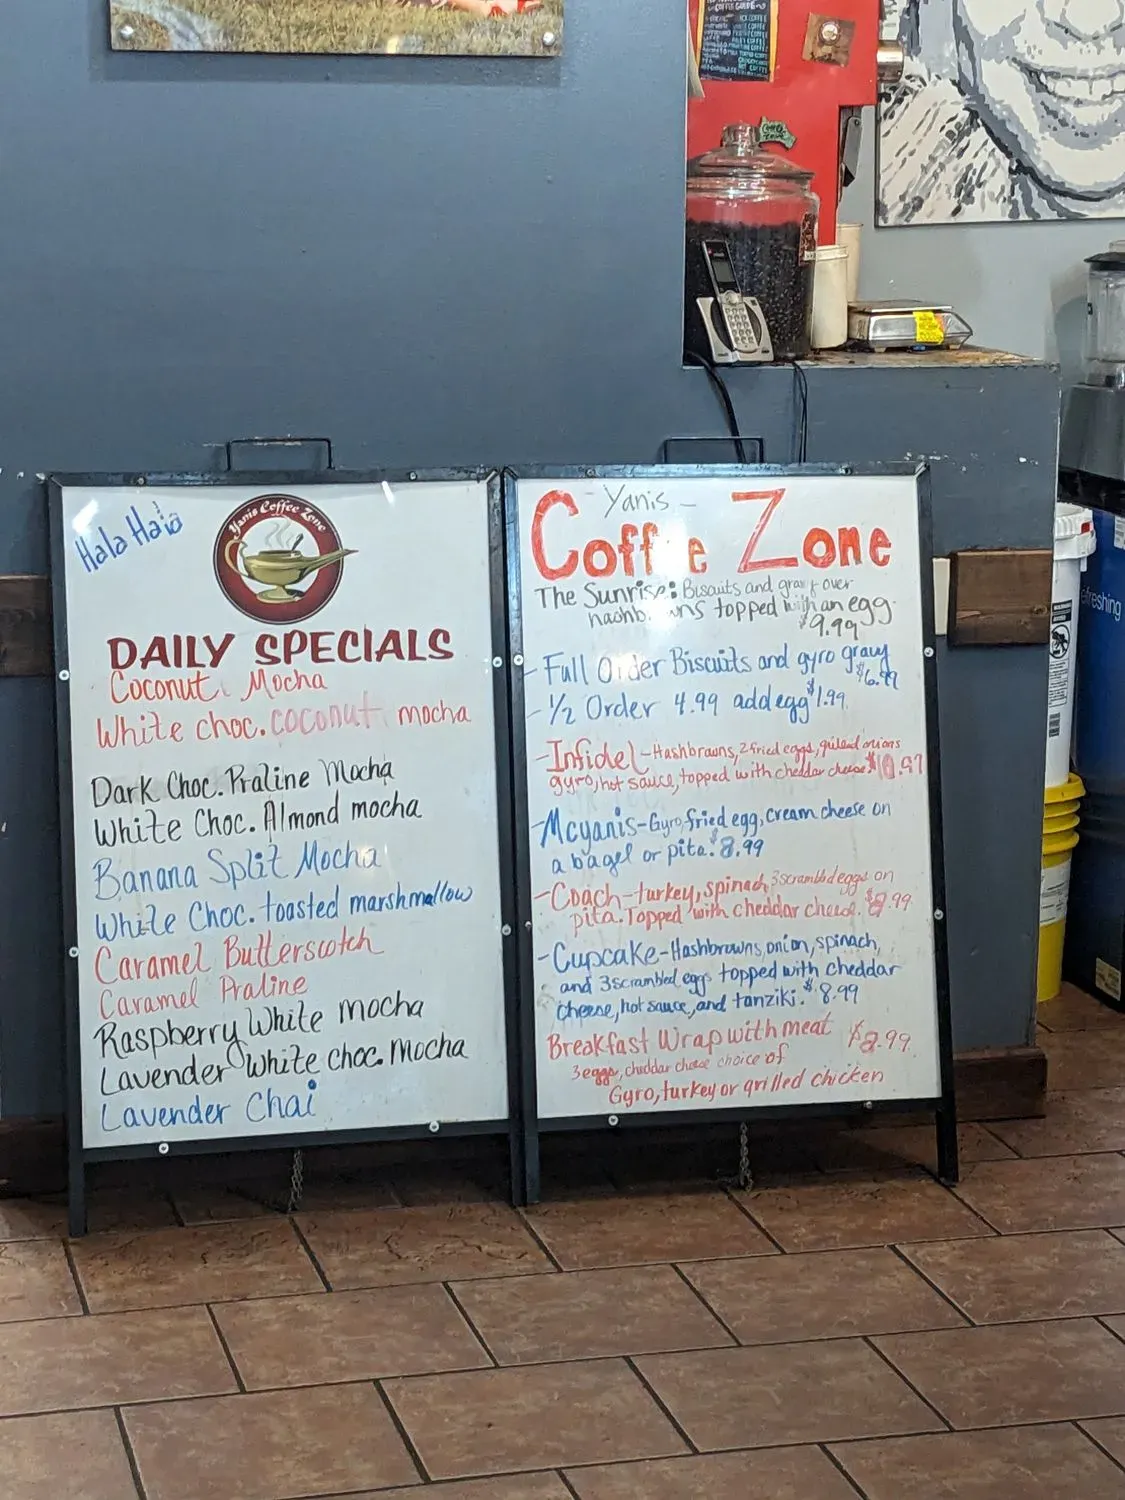 Hala Ha'io
Yanis Coffee Zone
DAILY SPECIALS
Coconut Mocha
White choc. coconut mocha
Dark Choc. Praline Mocha
White Choc. Almond mocha
Banana Split Mocha
White Choc. toasted marshmallow
Caramel Butterscotch
Caramel Praline
Raspberry White mocha
Lavender White choc. Mocha
Lavender Chai
- Yanis -
Coffee Zone
The Sunrise: Biscuits and gravy over
topped with an egg
$9.99
- Full Order Biscuits and gyro gravy
$6.99
- 1/2 Order 4.99 add egg $1.99
- Infidel - Hashbrowns, 2 fried eggs, grilled onions
gyro, hot sauce, topped with cheddar cheese
- Mcyanis - Gyro, fried egg, cream cheese on
a bagel or pita. $8.99
- Coach - turkey, spinach, 3 scrambled eggs on
pita. Topped with cheddar cheese.
- Cupcake - Hashbrowns, onion, spinach,
and 3 scrambled eggs topped with cheddar
cheese, hot sauce, and tanziki. $8.99
Breakfast Wrap with meat
3 eggs, chuddar cheese choice of
Gyro, turkey or grilled chicken
efreshing